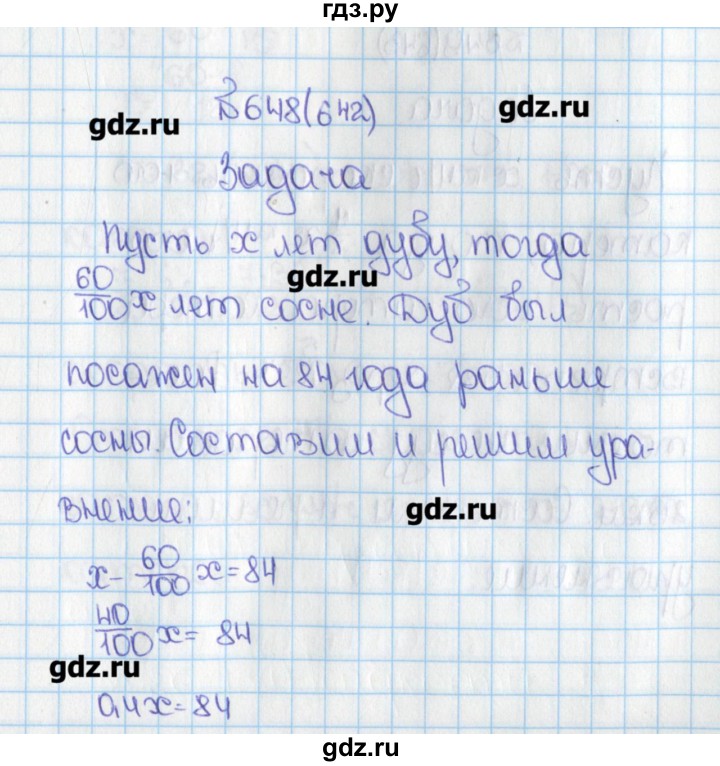 гдз.ру
№648(642)
gdz.ru
gdz.ru
Задача
Пусть x лет дубу, тогда
gdz.ru
60/100 x лет сосне. Дуб был
посажен на 84 года раньше
сосны. Составим и решим ура-
внение:
gdz.ru
x - 60/100 x = 84
40/100 x = 84
gdz.ru
0,4x = 84
gdz.ru